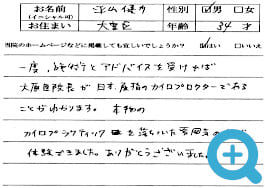 お名前 (イニシャル可) 性別 ☑男 □女
お住まい 大東区 年齢 34 才
当院のホームページなどに掲載しても宜しいでしょうか? ☑はい □いいえ
一度、施術とアドバイスを受ければ
大原医院長が日本屈指のカイロプロクターである
ことがわかります。本物の
カイロプラクティック を
体験できました。ありがとうございました。